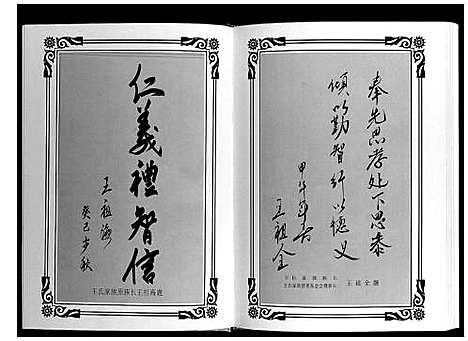 奉先思孝处下思恭
倾以勤智行以德义
王祖全
王祖全题
仁義禮智信
王祖海
癸巳岁秋
王氏家族原族长王祖海題